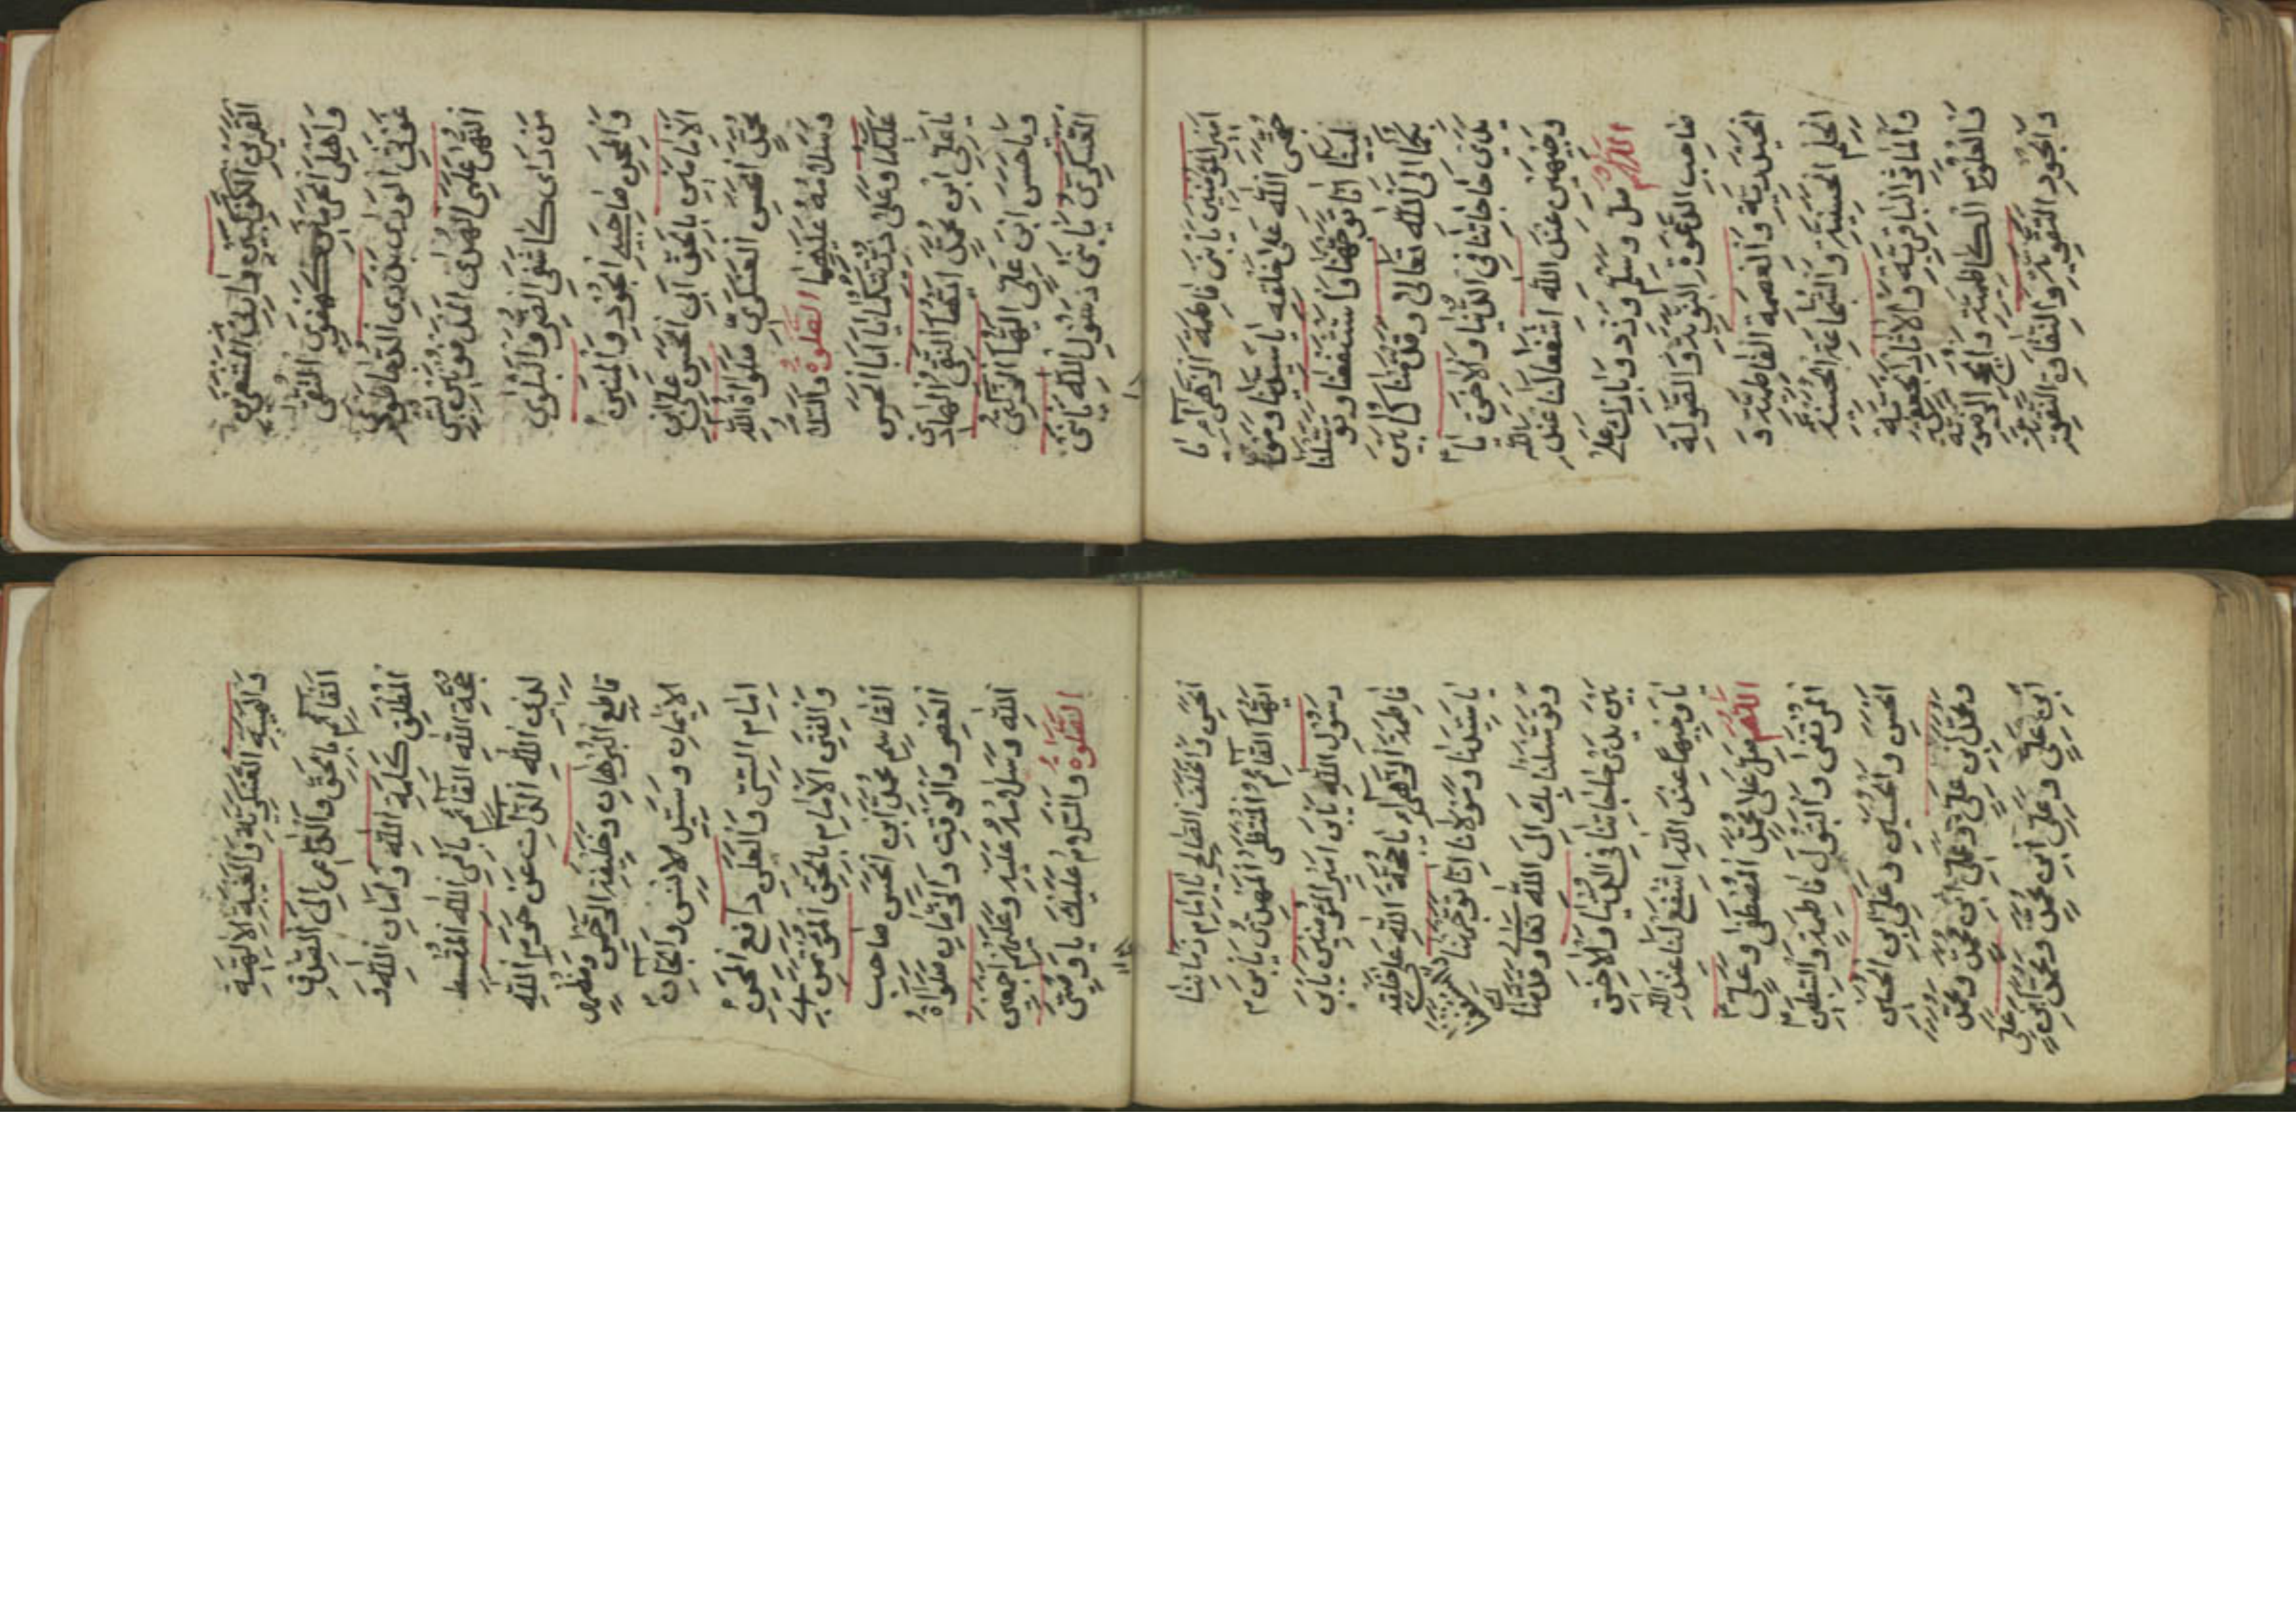 القمرين الكوكبين وارث المشعرين
واهلي الحرمين كهفي التقى
غوثي الورى بدري الدجى طودي
النهى علمي الهدى المدفونين بسر
من راى كاشفي الضر والبلوى
والمحن صاحبي الجود والمنن
الامامين بالحق ابي الحسن علي بن
محمد الحسن العسكري صلوات الله
وسلامه عليهما الصلوة والسلام
عليكما وعلى ذريتكما يا ابا الحسن
يا علي ابن محمد ايها التقي الهادي
ويا حسن ابن علي ايها الزكي
العسكري يا بني رسول الله يا بني
امير المومنين يا بني فاطمة الزهراء يا
حجتي الله على خلقه يا سيدنا ومو
لينا انا توجهنا واستشفعنا وتوسلنا
بكما الى الله تعالى وقدمناكما بين
يدي حاجاتنا في الدنيا والاخرة يا
وجيهين عند الله اشفعا لنا عند الله
اللهم صل وسلم وزد وبارك على
صاحب الدعوة النبوية والصولة
الحيدرية والعصمة الفاطمية و
الحلم الحسنية والشجاعة الحسينية
والماثر الباقرية والاثار الجعفرية
والعلوم الكاظمية والحجج الرضوية
والجود التقوية والنقاوة النقوية
والهيبة العسكرية والغيبة الالهية
القائم بالحق والداعي الى الصدق
المطلق كلمة الله وامان الله و
حجة الله القائم بامر الله المقسط
لدين الله الذاب عن حرم الله
قاطع البرهان وخليفة الرحمن ومظهر
الايمان وسيد الانس والجان
امام السر والعلن دافع المحن
والفتن الامام بالحق المؤتمن ابي
القاسم محمد ابن الحسن صاحب
العصر والزمان صلوات
الله وسلامه عليه وعليهم اجمعين
الصلوة والسلام عليك يا وصي
الحسن والخلف الصالح يا امام زماننا
ايها القائم المنتظر المهدي يا بن
رسول الله يا بن امير المومنين يا بن
فاطمة الزهراء يا حجة الله على خلقه
يا سيدنا ومولانا انا توجهنا واستشفعنا
وتوسلنا بك الى الله تعالى وقدمناك
بين يدي حاجاتنا في الدنيا والاخرة
يا وجيها عند الله اشفع لنا عند الله
اللهم صل على محمد المصطفى وعلي
المرتضى والبتول فاطمة والسبطين
الحسن والحسين وعلي ابن الحسين
ومحمد ابن علي وجعفر ابن محمد وموسى
ابن علي وعلي ابن محمد